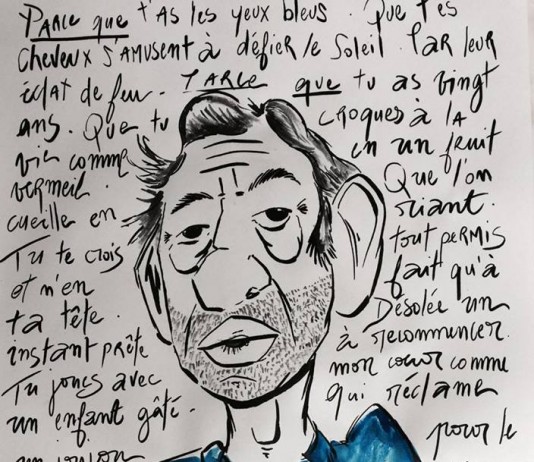 PARCE que t'AS les yeux bleus. Que tes
cheveux s'AMUSENT à défier le Soleil. Par leur
éclat de feu. PARCE que tu as vingt
ans. Que tu croques à la
vie comme en un fruit
vermeil. Que l'on
cueille en riant.
Tu te crois tout PERMIS
et n'en fait qu'à
ta tête. Désolée un
instant prête à recommencer.
Tu joues avec mon coeur comme
un enfant gâté. qui réclame
un joujou pour le